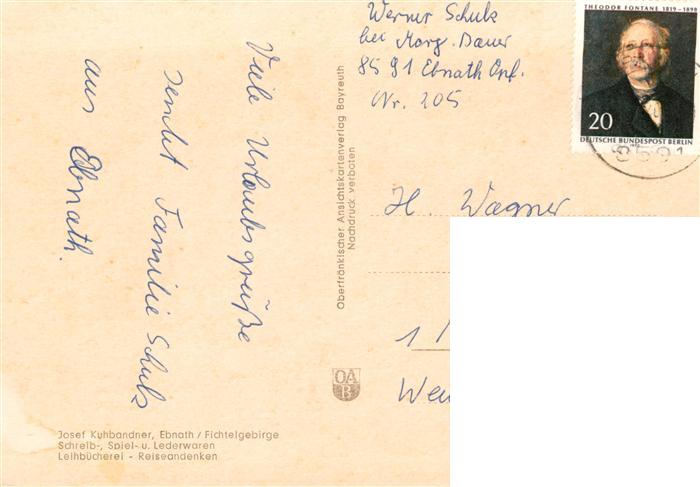 Viele Urlaubsgrüße
sendet Familie Schulz
aus Ebnath.
Werner Schulz
bei Marg. Bauer
8591 Ebnath Opf.
Nr. 205
THEODOR FONTANE 1819-1898
20
DEUTSCHE BUNDESPOST BERLIN
8591
H. Wagner
1/
Oberfränkischer Ansichtskartenverlag Bayreuth
Nachdruck verboten
OA
B
Josef Kuhbandner, Ebnath / Fichtelgebirge
Schreib-, Spiel- u. Lederwaren
Leihbücherei - Reiseandenken